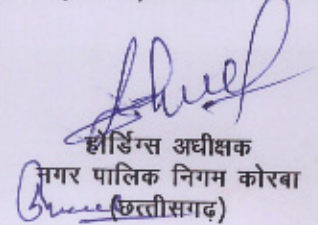 होर्डिंग्स अधीक्षक
नगर पालिक निगम कोरबा
(छत्तीसगढ़)